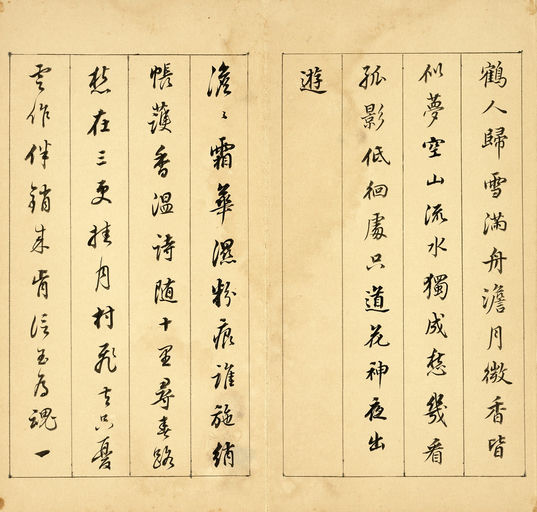 鶴人歸雪滿舟澹月微香皆
似夢空山流水獨成愁幾看
孤影低徊處只道花神夜出
遊
澹〻霜華濕粉痕誰施綃
帳護香溫詩隨十里尋春路
愁在三更挂月村飛去只憂
雲作伴銷來肯信玉為魂一